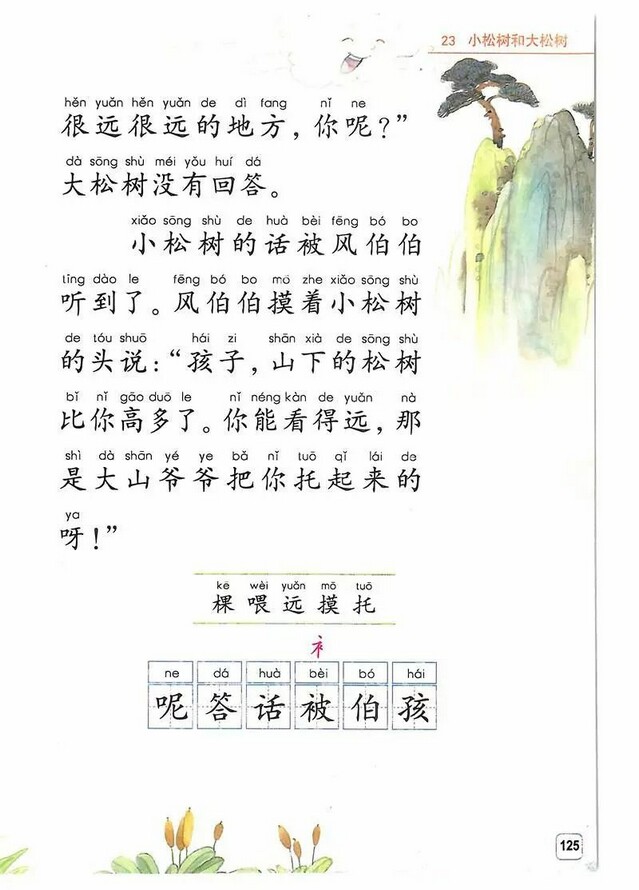 23 小松树和大松树
hěn yuǎn hěn yuǎn de dì fang nǐ ne
很远很远的地方，你呢？”
dà sōng shù méi yǒu huí dá
大松树没有回答。
xiǎo sōng shù de huà bèi fēng bó bo
小松树的话被风伯伯
tīng dào le fēng bó bo mō zhe xiǎo sōng shù
听到了。风伯伯摸着小松树
de tóu shuō hái zi shān xià de sōng shù
的头说：“孩子，山下的松树
bǐ nǐ gāo duō le nǐ néng kàn de yuǎn nà
比你高多了。你能看得远，那
shì dà shān yé ye bǎ nǐ tuō qǐ lái de
是大山爷爷把你托起来的
ya
呀！”
kē wèi yuǎn mō tuō
棵喂远摸托
衤
ne dá huà bèi bó hái
呢答话被伯孩
125